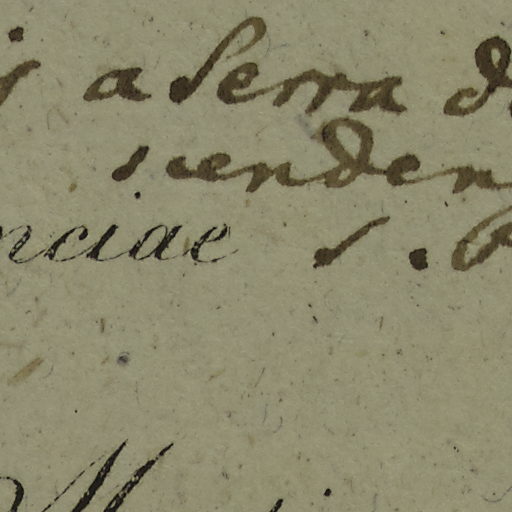 a Serra
scenden
nciae s.